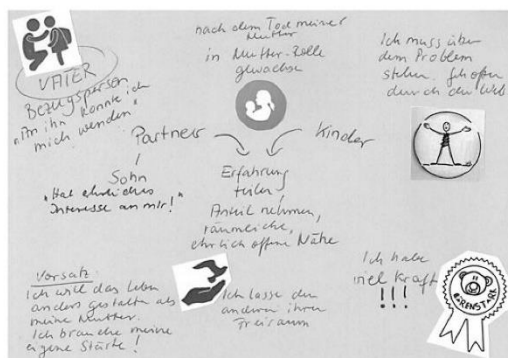 VATER
Bezugsperson
"An ihn konnte ich
mich wenden"
nach dem Tod meiner
Mutter
in Mutter-Rolle
gewachse
Ich muss über
dem Problem
stehen.
durch den
Partner
Kinder
Sohn
"Hat ehrliches
Interesse an mir!"
Erfahrung
teilen,
Anteil nehmen,
räumliche,
ehrlich offene Nähe
Vorsatz:
Ich will das Leben
anders gestalten als
meine Mutter.
Ich brauche meine
eigene Stärke!
Ich lasse den
anderen ihren
Freiraum
Ich habe
viel Kraft
!!!
BÄRENSTARK